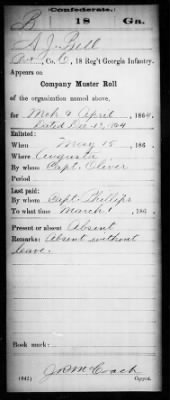 Confederate.
B 18 Ga.
A J Bell
Co. C, 18 Reg't Georgia Infantry.
Appears on
Company Muster Roll
of the organization named above,
for Mch & April, 1864.
Dated Dec 17, 1864
Enlisted:
When May 15, 186
Where Augusta
By whom Capt. Oliver
Period
Last paid:
By whom Capt. Phillips
To what time March 1, 186
Present or absent Absent
Remarks: Absent without
leave.
Book mark:
(642) Copyist.